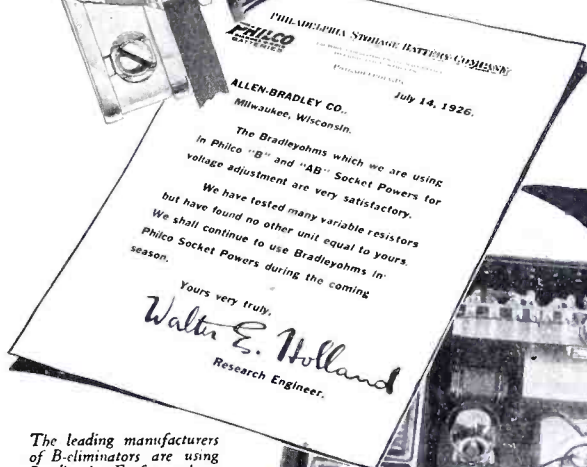 PHILADELPHIA STORAGE BATTERY COMPANY
PHILCO
BATTERIES
PHILADELPHIA
July 14, 1926.
ALLEN-BRADLEY CO.,
Milwaukee, Wisconsin.
The Bradleyohms which we are using
in Philco "B" and "AB" Socket Powers for
voltage adjustment are very satisfactory.
We have tested many variable resistors
but have found no other unit equal to yours.
We shall continue to use Bradleyohms in
Philco Socket Powers during the coming
season.
Yours very truly,
Walter E. Holland
Research Engineer.
The leading manufacturers
of B-eliminators are using